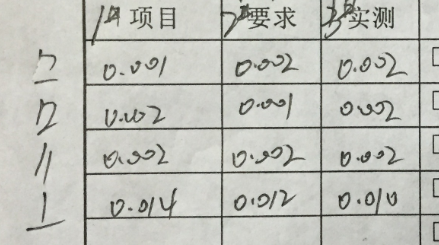 1# 项目 2# 要求 3# 实测
0.001 0.002 0.002
0.002 0.001 0.002
// 0.002 0.002 0.002
⊥ 0.014 0.012 0.010